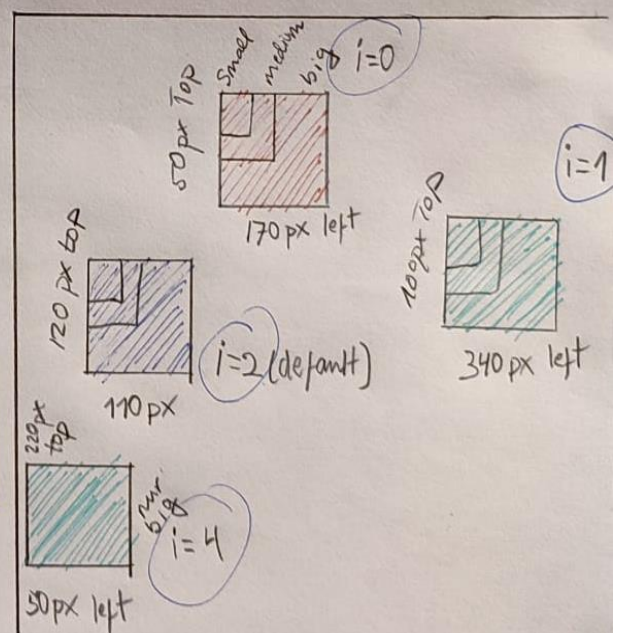 small
medium
big
i=0
50px Top
170px left
i=1
100px Top
340px left
120px top
i=2 (default)
110px
220px
top
nur
big
i=4
50px left